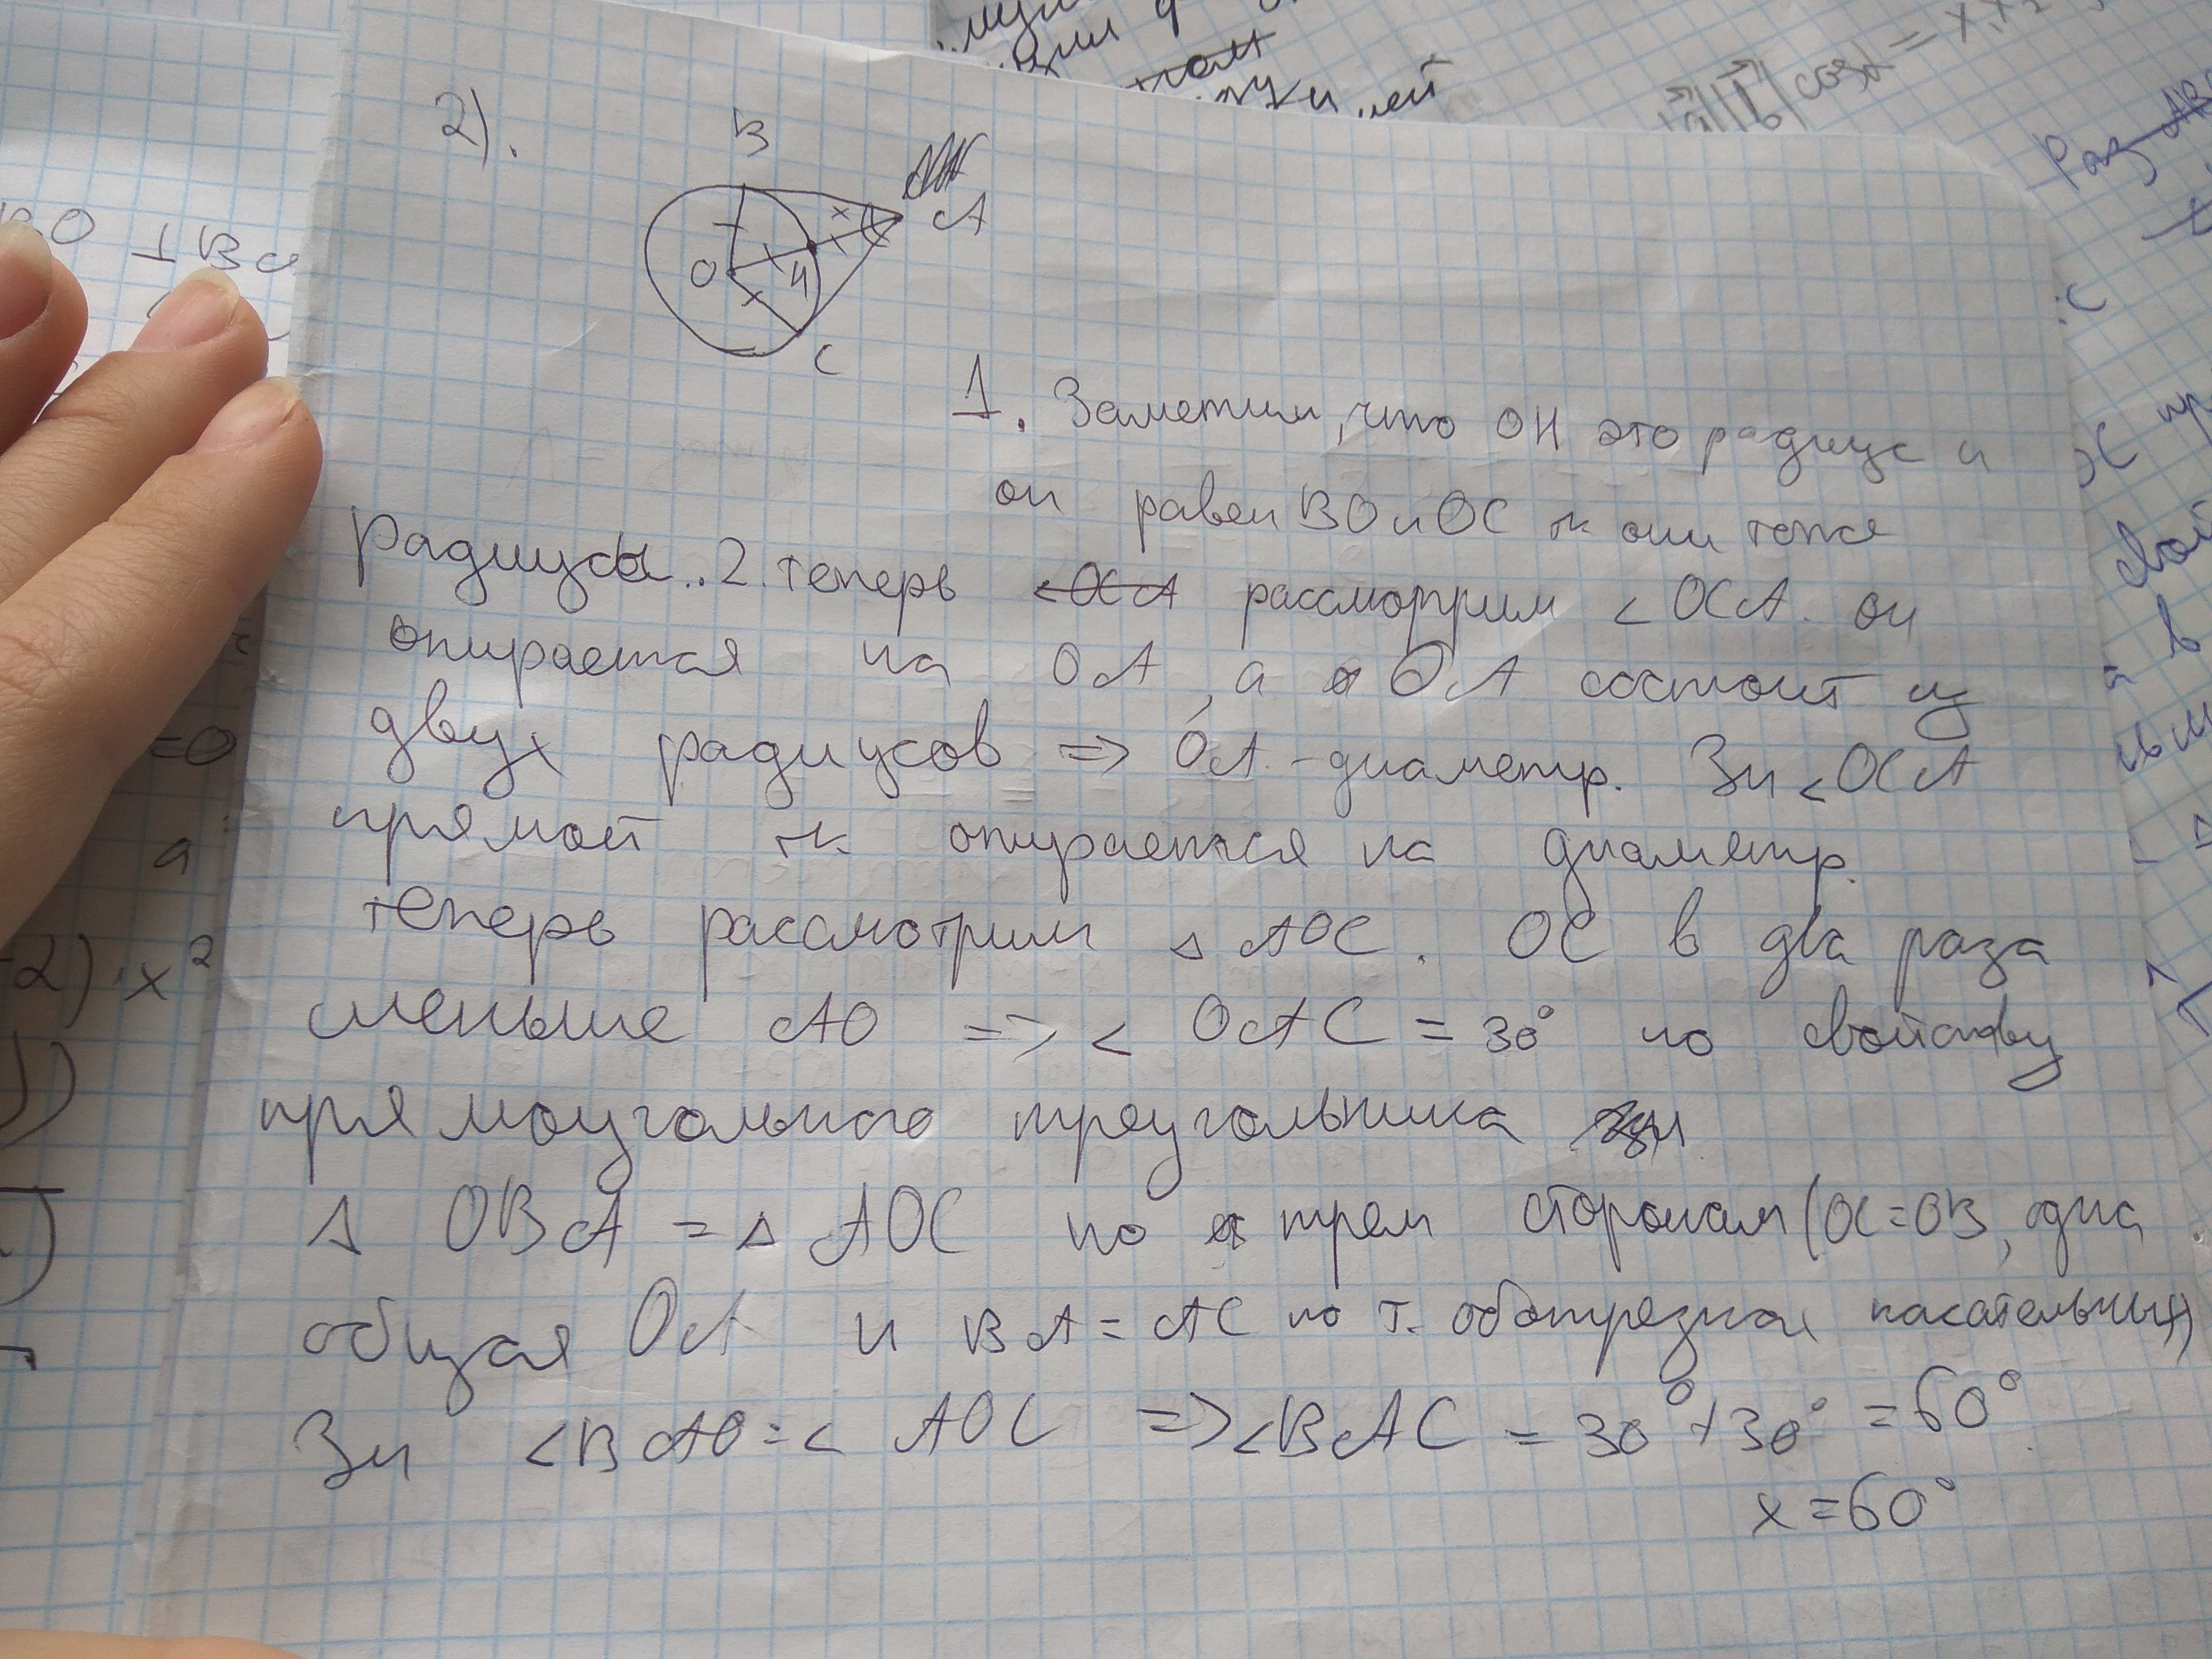 2).
B
A
O
Ч
C
1. Заметим, что OH это радиус и
он равен BO и OC тк они тоже
радиусы..2. теперь рассмотрим <OCA. он
опирается на OA, а OA состоит из
двух радиусов => OA - диаметр. Зн <OCA
прямой тк опирается на диаметр.
теперь рассмотрим △ AOC. OC в два раза
меньше AO => < OAC = 30° по свойству
прямоугольного треугольника
△ OBA = △ AOC по трем сторонам (OC=OB, одна
общая OA и BA = AC по т. об отрезках касательных)
Зн <BAO = < AOC => <BAC = 30° + 30° = 60°.
x = 60°
BO ⊥ BA
=0
-2) · x²
cosα = x₁x₂